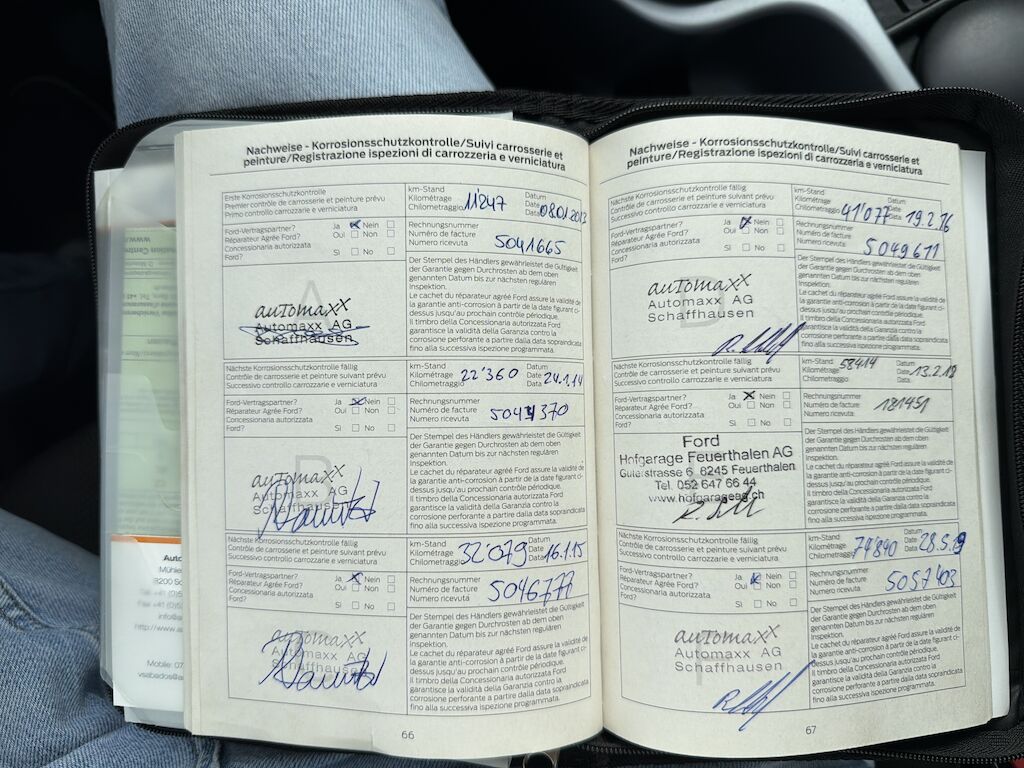 Nachweise - Korrosionsschutzkontrolle/Suivi carrosserie et
peinture/Registrazione ispezioni di carrozzeria e verniciatura
Erste Korrosionsschutzkontrolle
Premier contrôle carrosserie et peinture prévu
Primo controllo carrozzarie e verniciatura
km-Stand
Kilométrage
Chilometraggio
11'247
Datum
Date
Data
08.01.2013
Ford-Vertragspartner?
Réparateur Agrée Ford?
Concessionaria autorizzata
Ford?
Ja Nein
Oui Non
Sì No
Rechnungsnummer
Numéro de facture
Numero ricevuta
5041665
A
automaxx
Automaxx AG
Schaffhausen
Der Stempel des Händlers gewährleistet die Gültigkeit
der Garantie gegen Durchrosten ab dem oben
genannten Datum bis zur nächsten regulären
Inspektion.
Le cachet du réparateur agréé Ford assure la validité de
la garantie anti-corrosion à partir de la date figurant ci-
dessus jusqu'au prochain contrôle périodique.
Il timbro della Concessionaria autorizzata Ford
garantisce la validità della Garanzia contro la corrosione
perforante a partire dalla data sopraindicata
fino alla successiva ispezione programmata.
Nächste Korrosionsschutzkontrolle fällig
Contrôle de carrosserie et peinture suivant prévu
Successivo controllo carrozzerie e verniciatura
km-Stand
Kilométrage
Chilometraggio
22'360
Datum
Date
Data
24.1.14
Ford-Vertragspartner?
Réparateur Agrée Ford?
Concessionaria autorizzata
Ford?
Ja Nein
Oui Non
Sì No
Rechnungsnummer
Numéro de facture
Numero ricevuta
B
automaxx
Automaxx AG
Schaffhausen
Der Stempel des Händlers gewährleistet die Gültigkeit
der Garantie gegen Durchrosten ab dem oben
genannten Datum bis zur nächsten regulären
Inspektion.
Le cachet du réparateur agréé Ford assure la validité de
la garantie anti-corrosion à partir de la date figurant ci-
dessus jusqu'au prochain contrôle périodique.
Il timbro della Concessionaria autorizzata Ford
garantisce la validità della Garanzia contro la
corrosione perforante a partire dalla data sopraindicata
fino alla successiva ispezione programmata.
Nächste Korrosionsschutzkontrolle fällig
Contrôle de carrosserie et peinture suivant prévu
Successivo controllo carrozzerie e verniciatura
km-Stand
Kilométrage
Chilometraggio
32'079
Datum
Date
Data
16.1.15
Ford-Vertragspartner?
Réparateur Agrée Ford?
Concessionaria autorizzata
Ford?
Ja Nein
Oui Non
Sì No
Rechnungsnummer
Numéro de facture
Numero ricevuta
5046777
automaxx
Automaxx AG
Schaffhausen
Der Stempel des Händlers gewährleistet die Gültigkeit
der Garantie gegen Durchrosten ab dem oben
genannten Datum bis zur nächsten regulären
Inspektion.
Le cachet du réparateur agréé Ford assure la validité de
la garantie anti-corrosion à partir de la date figurant ci-
dessus jusqu'au prochain contrôle périodique.
Il timbro della Concessionaria autorizzata Ford
garantisce la validità della Garanzia contro la
corrosione perforante a partire dalla data sopraindicata
fino alla successiva ispezione programmata.
66
Nachweise - Korrosionsschutzkontrolle/Suivi carrosserie et
peinture/Registrazione ispezioni di carrozzeria e verniciatura
Nächste Korrosionsschutzkontrolle fällig
Contrôle de carrosserie et peinture suivant prévu
Successivo controllo carrozzerie e verniciatura
km-Stand
Kilométrage
Chilometraggio
41'077
Datum
Date
Data
19.2.16
Ford-Vertragspartner?
Réparateur Agrée Ford?
Concessionaria autorizzata
Ford?
Ja Nein
Oui Non
Sì No
Rechnungsnummer
Numéro de facture
Numero ricevuta
5049671
D
automaxx
Automaxx AG
Schaffhausen
Der Stempel des Händlers gewährleistet die Gültigkeit
der Garantie gegen Durchrosten ab dem oben
genannten Datum bis zur nächsten regulären
Inspektion.
Le cachet du réparateur agréé Ford assure la validité de
la garantie anti-corrosion à partir de la date figurant ci-
dessus jusqu'au prochain contrôle périodique.
Il timbro della Concessionaria autorizzata Ford
garantisce la validità della Garanzia contro la corrosione
perforante a partire dalla data sopraindicata
fino alla successiva ispezione programmata.
Nächste Korrosionsschutzkontrolle fällig
Contrôle de carrosserie et peinture suivant prévu
Successivo controllo carrozzerie e verniciatura
km-Stand
Kilométrage
Chilometraggio
58414
Datum
Date
Data
13.2.18
Ford-Vertragspartner?
Réparateur Agrée Ford?
Concessionaria autorizzata
Ford?
Ja Nein
Oui Non
Sì No
Rechnungsnummer
Numéro de facture
Numero ricevuta
181451
Ford
Hofgarage Feuerthalen AG
Güterstrasse 6 8245 Feuerthalen
Tel. 052 647 66 44
www.hofgarageag.ch
Der Stempel des Händlers gewährleistet die Gültigkeit
der Garantie gegen Durchrosten ab dem oben
genannten Datum bis zur nächsten regulären
Inspektion.
Le cachet du réparateur agréé Ford assure la validité de
la garantie anti-corrosion à partir de la date figurant ci-
dessus jusqu'au prochain contrôle périodique.
Il timbro della Concessionaria autorizzata Ford
garantisce la validità della Garanzia contro la
corrosione perforante a partire dalla data sopraindicata
fino alla successiva ispezione programmata.
Nächste Korrosionsschutzkontrolle fällig
Contrôle de carrosserie et peinture suivant prévu
Successivo controllo carrozzerie e verniciatura
km-Stand
Kilométrage
Chilometraggio
74'890
Datum
Date
Data
28.5.19
Ford-Vertragspartner?
Réparateur Agrée Ford?
Concessionaria autorizzata
Ford?
Ja Nein
Oui Non
Sì No
Rechnungsnummer
Numéro de facture
Numero ricevuta
5057403
automaxx
Automaxx AG
Schaffhausen
Der Stempel des Händlers gewährleistet die Gültigkeit
der Garantie gegen Durchrosten ab dem oben
genannten Datum bis zur nächsten regulären
Inspektion.
Le cachet du réparateur agréé Ford assure la validité de
la garantie anti-corrosion à partir de la date figurant ci-
dessus jusqu'au prochain contrôle périodique.
Il timbro della Concessionaria autorizzata Ford
garantisce la validità della Garanzia contro la
corrosione perforante a partire dalla data sopraindicata
fino alla successiva ispezione programmata.
67